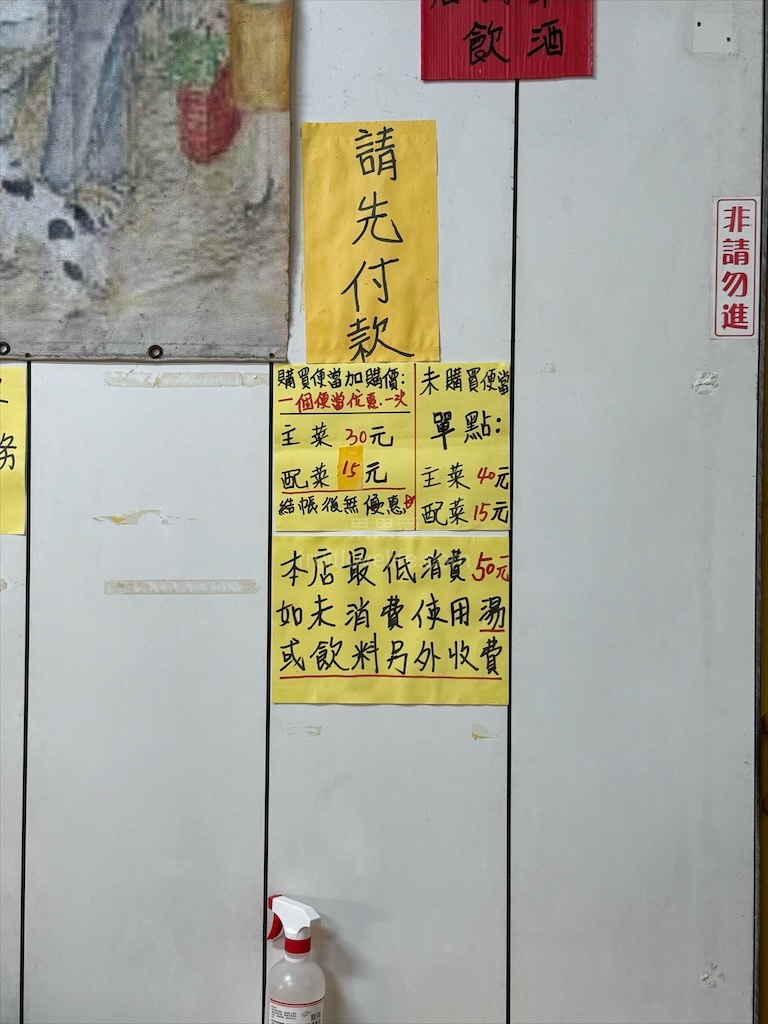 飲酒
請先付款
非請勿進
購買便當加購價:
一個便當優惠一次
主菜 30元
配菜 15元
結帳後無優惠
未購買便當
單點:
主菜 40元
配菜 15元
本店最低消費50元
如未消費使用湯
或飲料另外收費
務